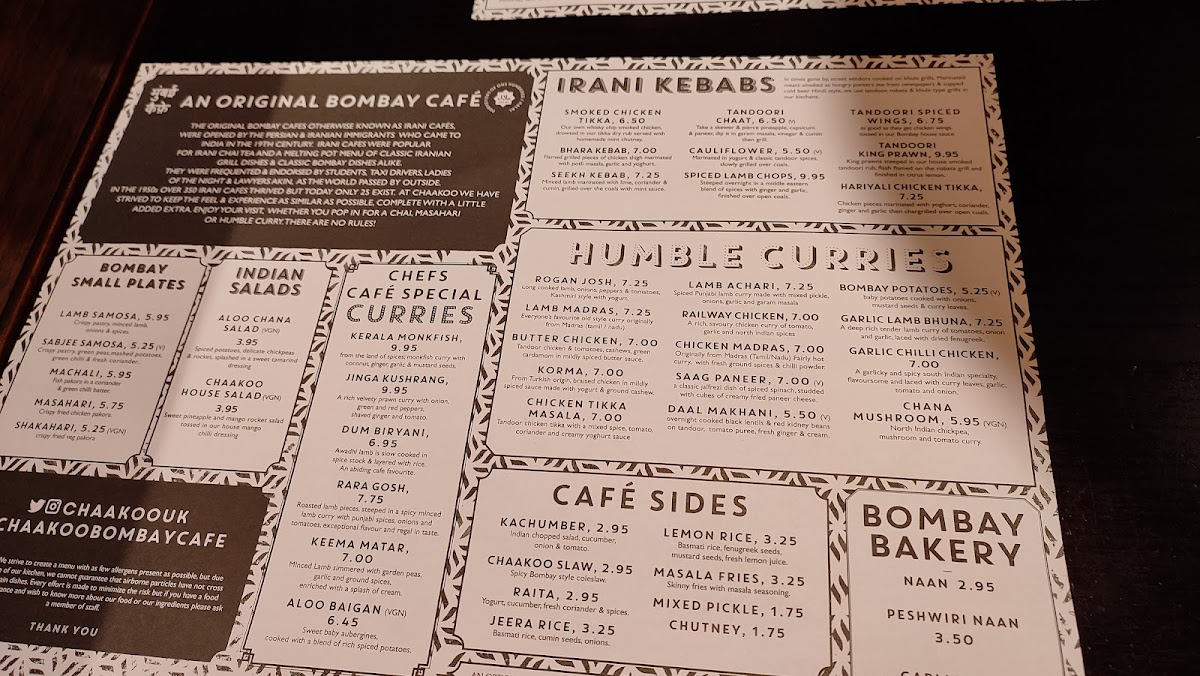 मुंबई
AN ORIGINAL BOMBAY CAFÉ
THE ORIGINAL BOMBAY CAFES OTHERWISE KNOWN AS IRANI CAFÉS,
WERE OPENED BY THE PERSIAN & IRANIAN IMMIGRANTS WHO CAME TO
INDIA IN THE 19TH CENTURY. IRANI CAFES WERE POPULAR
FOR IRANI CHAI TEA AND A MELTING POT MENU OF CLASSIC IRANIAN
GRILL DISHES & CLASSIC BOMBAY DISHES ALIKE.
THEY WERE FREQUENTED & ENDORSED BY STUDENTS, TAXI DRIVERS, LADIES
OF THE NIGHT & LAWYERS AKIN, AS THE WORLD PASSED BY OUTSIDE.
IN THE 1950s OVER 350 IRANI CAFES THRIVED BUT TODAY ONLY 25 EXIST. AT CHAAKOO WE HAVE
STRIVED TO KEEP THE FEEL & EXPERIENCE AS SIMILAR AS POSSIBLE, COMPLETE WITH A LITTLE
ADDED EXTRA. ENJOY YOUR VISIT, WHETHER YOU POP IN FOR A CHAI, MASAHARI
OR HUMBLE CURRY. THERE ARE NO RULES!
IRANI KEBABS
In times gone by, street vendors cooked on khule grills. Marinated
meats smoked as hungry punters ate from newspapers & supped
cold beer. Hindi style, we use tandoor, robata & khule type grills in
our kitchens.
SMOKED CHICKEN
TIKKA, 6.50
Our own whisky chip smoked chicken,
drowned in our tikka dry rub served with
homemade mint chutney.
BHARA KEBAB, 7.00
Flamed grilled pieces of chicken thigh marinated
with potli masala, garlic and yoghurt.
SEEKH KEBAB, 7.25
Minced lamb marinated with lime, coriander &
cumin, grilled over the coals with mint sauce.
TANDOORI
CHAAT, 6.50 (V)
Take a skewer & pierce pineapple, capsicum
& paneer, dip it in garam masala, vinegar & cumin
then grill.
CAULIFLOWER, 5.50 (V)
Marinated in yogurt & classic tandoor spices,
slowly grilled over coals.
SPICED LAMB CHOPS, 9.95
Steeped overnight in a middle eastern
blend of spices with ginger and garlic,
finished over open coals.
TANDOORI SPICED
WINGS, 6.75
as good as they get chicken wings,
tossed in our Bombay house sauce
TANDOORI
KING PRAWN, 9.95
King prawns steeped in our house smoked
tandoori rub, flash flamed on the robata grill and
finished in citrus lemon.
HARIYALI CHICKEN TIKKA,
7.25
Chicken pieces marinated with yoghurt, coriander,
ginger and garlic then chargrilled over open coals.
BOMBAY
SMALL PLATES
LAMB SAMOSA, 5.95
Crispy pastry, minced lamb,
onions & spices.
SABJEE SAMOSA, 5.25 (V)
Crispy pastry, green peas, mashed potatoes,
green chilli & fresh coriander.
MACHALI, 5.95
Fish pakora in a coriander
& green chilli batter.
MASAHARI, 5.75
Crispy fried chicken pakora.
SHAKAHARI, 5.25 (VGN)
crispy fried veg pakora
INDIAN
SALADS
ALOO CHANA
SALAD (VGN)
3.95
Spiced potatoes, delicate chickpeas
& rocket, splashed in a sweet tamarind
dressing
CHAAKOO
HOUSE SALAD (VGN)
3.95
Sweet pineapple and mango rocket salad
tossed in our house mango
chilli dressing
CHEFS
CAFÉ SPECIAL
CURRIES
KERALA MONKFISH,
9.95
from the land of spices; monkfish curry with
coconut, ginger, garlic & mustard seeds.
JINGA KUSHRANG,
9.95
A rich velvety prawn curry with onion,
green and red peppers,
shaved ginger and tomato.
DUM BIRYANI,
6.95
Awadhi lamb is slow cooked in
spice stock & layered with rice.
An abiding cafe favourite.
RARA GOSH,
7.75
Roasted lamb pieces, steeped in a spicy minced
lamb curry with punjabi spices, onions and
tomatoes, exceptional flavour and regal in taste.
KEEMA MATAR,
7.00
Minced Lamb simmered with garden peas,
garlic and ground spices,
enriched with a splash of cream.
ALOO BAIGAN (VGN)
6.45
Sweet baby aubergines,
cooked with a blend of rich spiced potatoes.
HUMBLE CURRIES
ROGAN JOSH, 7.25
Long cooked lamb, onions, peppers & tomatoes,
Kashmiri style with yogurt.
LAMB MADRAS, 7.25
Everyone's favourite old style curry originally
from Madras (tamil / nadu)
BUTTER CHICKEN, 7.00
Tandoor chicken & tomatoes, cashews, green
cardamom in mildly spiced butter sauce.
KORMA, 7.00
From Turkish origin, braised chicken in mildly
spiced sauce made with yogurt & ground cashew.
CHICKEN TIKKA
MASALA, 7.00
Tandoor chicken tikka with a mixed spice, tomato,
coriander and creamy yoghurt sauce
LAMB ACHARI, 7.25
Spiced Punjabi lamb curry made with mixed pickle,
onions, garlic and garam masala
RAILWAY CHICKEN, 7.00
A rich, savoury chicken curry of tomato,
garlic and north Indian spices
CHICKEN MADRAS, 7.00
Originally from Madras (Tamil/Nadu) Fairly hot
curry, with fresh ground spices & chilli powder.
SAAG PANEER, 7.00 (V)
a classic jalfrezi dish of spiced spinach, studded
with cubes of creamy fried paneer cheese.
DAAL MAKHANI, 5.50 (V)
overnight cooked black lentils & red kidney beans
on tandoor, tomato puree, fresh ginger & cream.
BOMBAY POTATOES, 5.25 (V)
baby potatoes cooked with onions,
mustard seeds & curry leaves.
GARLIC LAMB BHUNA, 7.25
A deep rich tender lamb curry of tomatoes, onion
and garlic, laced with dried fenugreek.
GARLIC CHILLI CHICKEN,
7.00
A garlicky and spicy south Indian specialty,
flavoursome and laced with curry leaves, garlic,
tomato and onion.
CHANA
MUSHROOM, 5.95 (VGN)
North Indian chickpea,
mushroom and tomato curry.
CAFÉ SIDES
KACHUMBER, 2.95
Indian chopped salad, cucumber,
onion & tomato.
CHAAKOO SLAW, 2.95
Spicy Bombay style coleslaw.
RAITA, 2.95
Yogurt, cucumber, fresh coriander & spices.
JEERA RICE, 3.25
Basmati rice, cumin seeds, onions.
LEMON RICE, 3.25
Basmati rice, fenugreek seeds,
mustard seeds, fresh lemon juice.
MASALA FRIES, 3.25
Skinny fries with masala seasoning.
MIXED PICKLE, 1.75
CHUTNEY, 1.75
BOMBAY
BAKERY
NAAN 2.95
PESHWIRI NAAN
3.50
CHAAKOOUK
CHAAKOOBOMBAYCAFE
We strive to create a menu with as few allergens present as possible, but due
of our kitchen, we cannot guarantee that airborne particles have not cross
ain dishes. Every effort is made to minimize the risk but if you have a food
ance and wish to know more about our food or our ingredients please ask
a member of staff.
THANK YOU